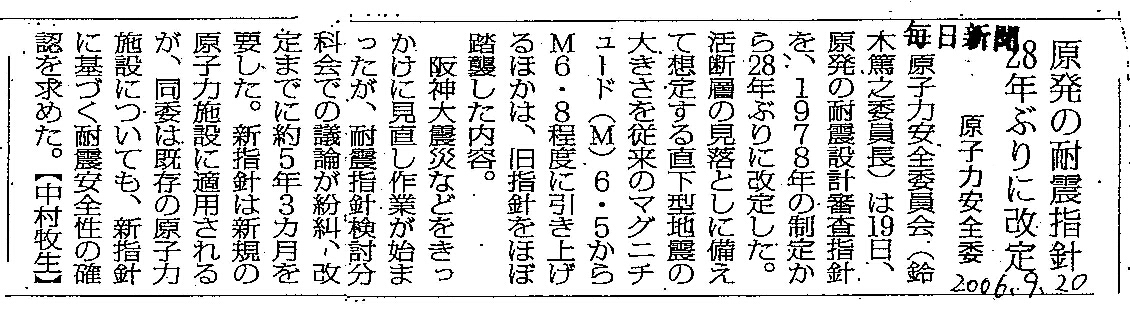 原発の耐震指針
28年ぶりに改定
原子力安全委
毎日新聞
2006.9.20
原子力安全委員会(鈴
木篤之委員長)は19日、
原発の耐震設計審査指針
を、1978年の制定か
ら28年ぶりに改定した。
活断層の見落としに備え
て想定する直下型地震の
大きさを従来のマグニチ
ュード(M)6・5から
M6・8程度に引き上げ
るほかは、旧指針をほぼ
踏襲した内容。
阪神大震災などをきっ
かけに見直し作業が始ま
ったが、耐震指針検討分
科会での議論が紛糾、改
定までに約5年3カ月を
要した。新指針は新規の
原子力施設に適用される
が、同委は既存の原子力
施設についても、新指針
に基づく耐震安全性の確
認を求めた。【中村牧生】